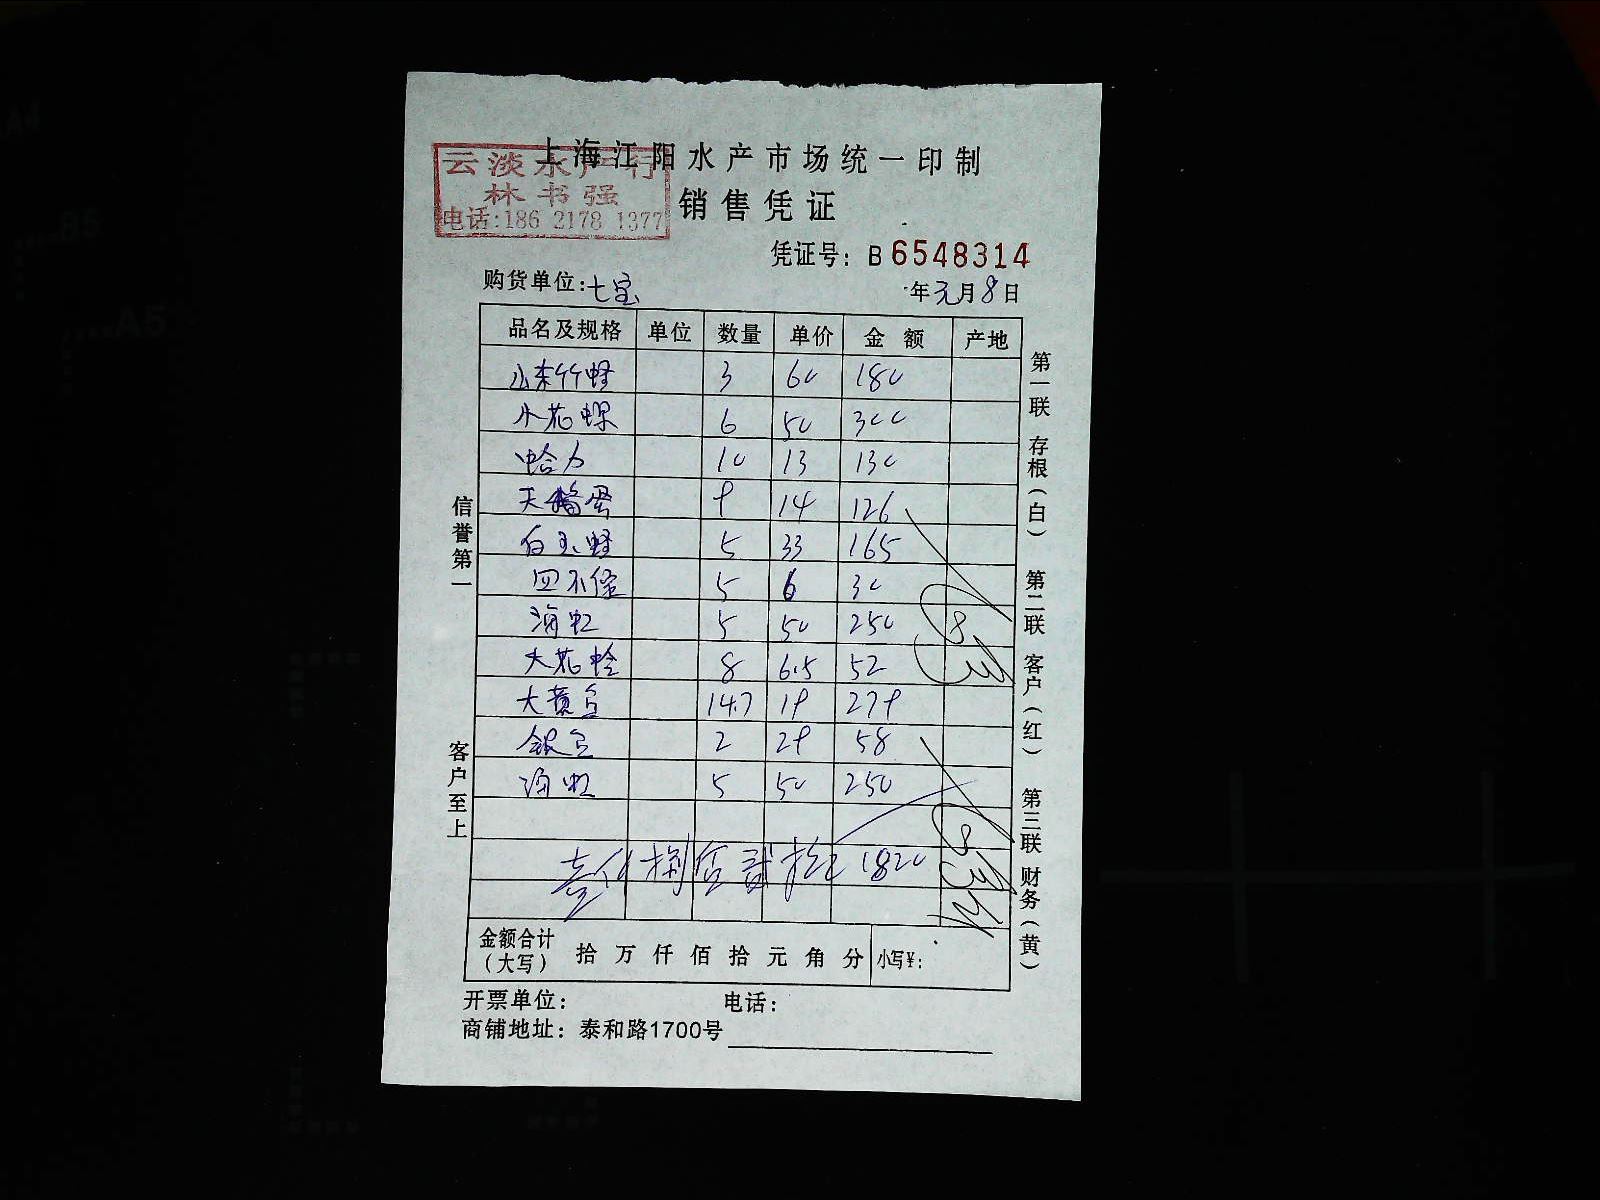 上海江阳水产市场统一印制
云淡水产行
林书强
电话:186 2178 1377
销售凭证
凭证号: B 6548314
购货单位:七宝
年元月8日
品名及规格 单位 数量 单价 金额 产地
山东竹蛏 3 60 180
小花螺 6 50 300
哈力 10 13 130
天鹅蛋 9 14 126
白玉蛏 5 33 165
四不像 5 6 30
海虹 5 50 250
大花蛤 8 6.5 52
大黄豆 14.7 19 279
银豆 2 29 58
海虹 5 50 250
壹仟捌佰贰拾元 1820
金额合计(大写) 拾万仟佰拾元角分 小写¥:
开票单位: 电话:
商铺地址: 泰和路1700号
信誉第一 客户至上
第一联 存根(白) 第二联 客户(红) 第三联 财务(黄)